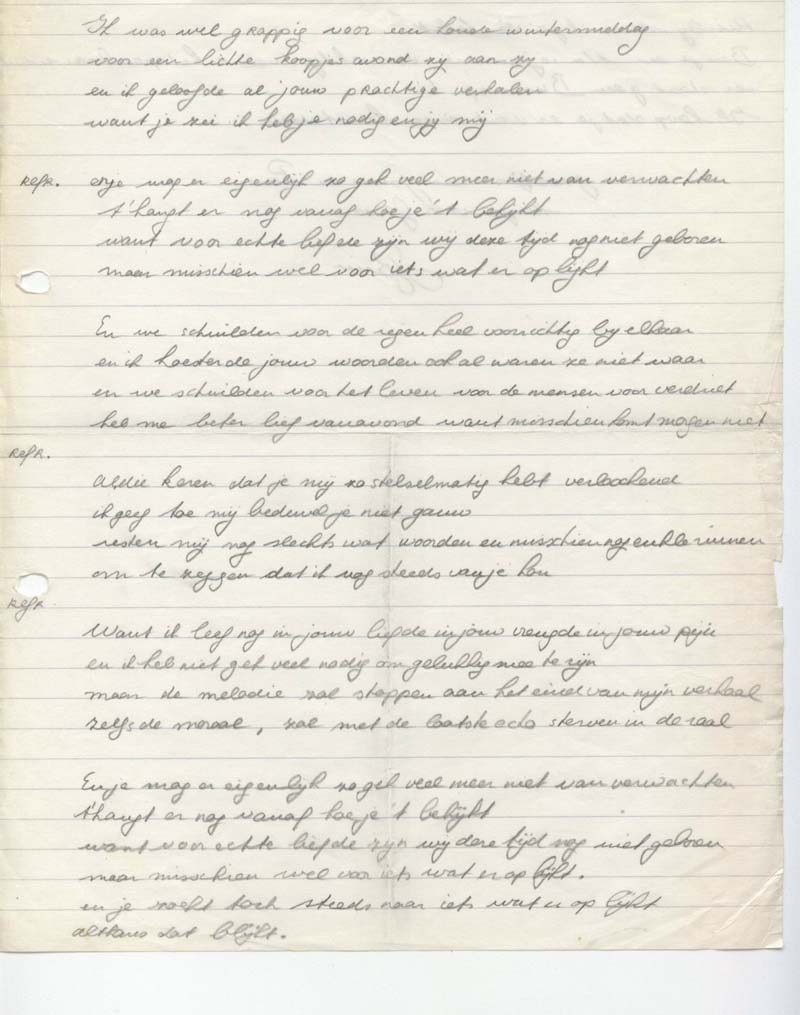 Ik was wel grappig voor een koude wintermiddag
voor een lichte koopjes avond zy aan zy
en ik geloofde al jouw prachtige verhalen
want je zei ik heb je nodig en jy mij
refr. en je mag er eigenlijk zo gek veel meer niet van verwachten
t'hangt er nog vanaf hoe je 't bekijkt
want voor echte liefde zijn wij deze tijd nog niet geboren
maar misschien wel voor iets wat er op lijkt
En we schuilden voor de regen heel voorzichtig by elkaar
en ik koesterde jouw woorden ook al waren ze niet waar
en we schuilden voor het leven voor de mensen voor verdriet
heb me beter lief vanavond want misschien komt morgen niet
refr.
Al die keren dat je mij zo stelselmatig hebt verloochend
ik geef toe mij bedriegt je niet gauw
resten mij nog slechts wat woorden en misschien nog enkle zinnen
om te zeggen dat ik nog steeds van je hou
refr
Want ik leef nog in jouw liefde in jouw vreugde in jouw pijn
en ik heb niet gek veel nodig om gelukkig mee te zijn
maar de melodie zal stoppen aan het eind van mijn verhaal
zelfs de moraal, zal met de laatste echo sterven in de zaal
En je mag er eigenlijk zo gek veel meer niet van verwachten
t'hangt er nog vanaf hoe je 't bekijkt
want voor echte liefde zijn wy deze tijd nog niet geboren
maar misschien wel voor iets wat er op lijkt.
en je zoekt toch steeds naar iets wat er op lijkt
althans dat blijkt.